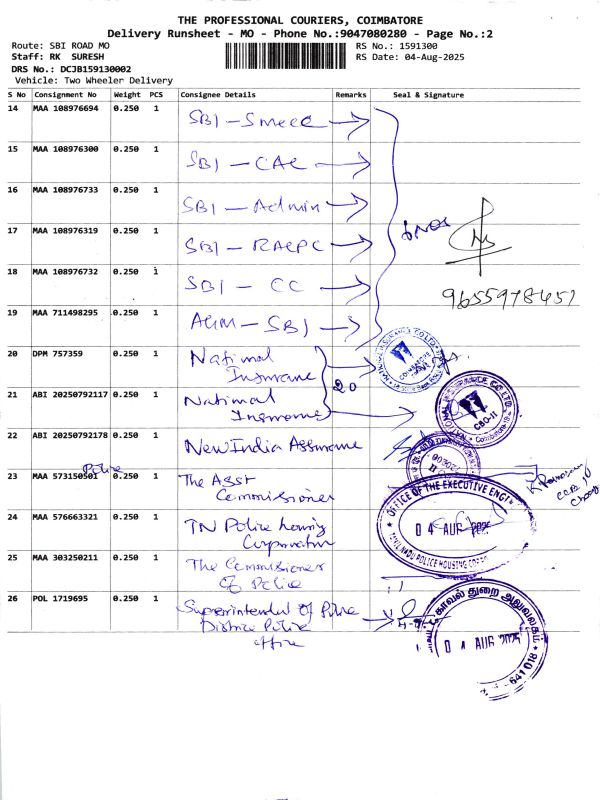 THE PROFESSIONAL COURIERS, COIMBATORE
Delivery Runsheet - MO - Phone No.:9047080280 - Page No.:2
Route: SBI ROAD MO
RS No.: 1591300
Staff: RK SURESH
RS Date: 04-Aug-2025
DRS No.: DCJB159130002
Vehicle: Two Wheeler Delivery
S No Consignment No Weight PCS Consignee Details Remarks Seal & Signature
14 MAA 108976694 0.250 1 SBI - Smecc
15 MAA 108976300 0.250 1 SBI - CAC
16 MAA 108976733 0.250 1 SBI - Admin
17 MAA 108976319 0.250 1 SBI - RACPC
9655978457
18 MAA 108976732 0.250 1 SBI - CC
19 MAA 711498295 0.250 1 AGM - SBI
20 DPM 757359 0.250 1 National
Insurance
20
COIMBATORE
21 ABI 20250792117 0.250 1 National
Insurance
CBO-II
22 ABI 20250792178 0.250 1 New India Assurance
Police
23 MAA 573150501 0.250 1 The Asst
Commissioner
OFFICE OF THE EXECUTIVE ENGI
04 AUG 2025
TAMIL NADU POLICE HOUSING CORPO
24 MAA 576663321 0.250 1 TN Police housing
Corporation
25 MAA 303250211 0.250 1 The Commissioner
Of Police
26 POL 1719695 0.250 1 Superintendent Of Police
District Police
office
காவல் துறை அலுவலகம்
04 AUG 2025
641 018